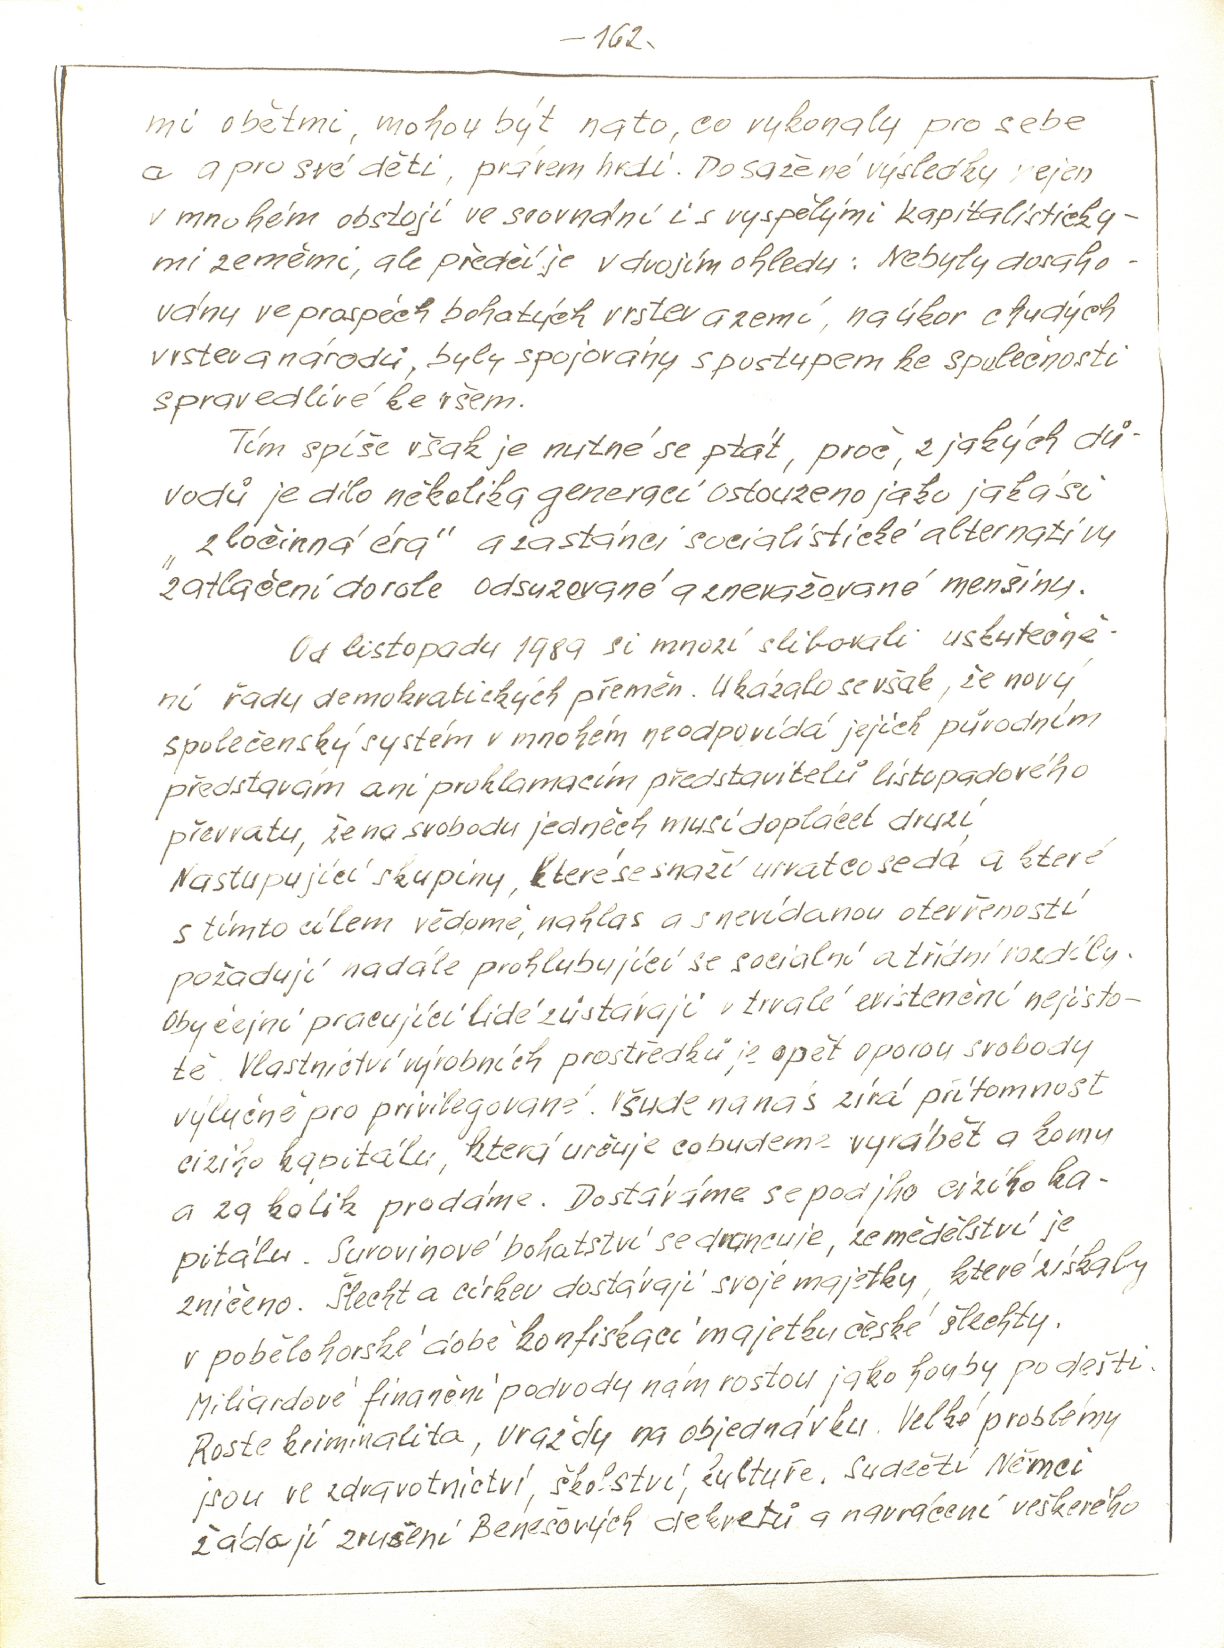 – 162.
mi obětmi, mohou být na to, co vykonaly pro sebe
a a pro své děti, právem hrdi. Dosažené výsledky nejen
v mnohém obstojí ve srovnání i s vyspělými kapitalisticky-
mi zeměmi, ale předčí je v dvojím ohledu: Nebyly dosaho-
vány ve prospěch bohatých vrstev a zemí, na úkor chudých
vrstev a národů, byly spojovány s postupem ke společnosti
spravedlivé ke všem.
Tím spíše však je nutné se ptát, proč, z jakých dů-
vodů je dílo několika generací ostouzeno jako jakási
„zločinná éra" a zastánci socialistické alternativy
zatlačení do role odsuzované a znevažované menšiny.
Od listopadu 1989 si mnozí slibovali uskutečně-
ní řady demokratických přeměn. Ukázalo se však, že nový
společenský systém v mnohém neodpovídá jejich původním
představám ani proklamacím představitelů listopadového
převratu, že na svobodu jedněch musí doplácet druzí
Nastupující skupiny, které se snaží urvat co se dá a které
s tímto cílem vědomě, nahlas a s nevídanou otevřeností
požadují nadále prohlubující se sociální a třídní rozdíly.
Obyčejní pracující lidé zůstávají v trvalé existenční nejisto-
tě. Vlastnictví výrobních prostředků je opět oporou svobody
výlučně pro privilegované. Všude na nás zírá přítomnost
cizího kapitálu, která určuje co budeme vyrábět a komu
a za kolik prodáme. Dostáváme se pod jho cizího ka-
pitálu. Surovinové bohatství se drancuje, zemědělství je
zničeno. Šlecht a církev dostávají svoje majetky, které získaly
v pobělohorské době konfiskací majetku české šlechty.
Miliardové finanční podvody nám rostou jako houby po dešti.
Roste kriminalita, vraždy na objednávku. Velké problémy
jsou ve zdravotnictví, školství, kultuře. Sudečtí Němci
žádají zrušení Benešových dekretů a navrácení veškerého